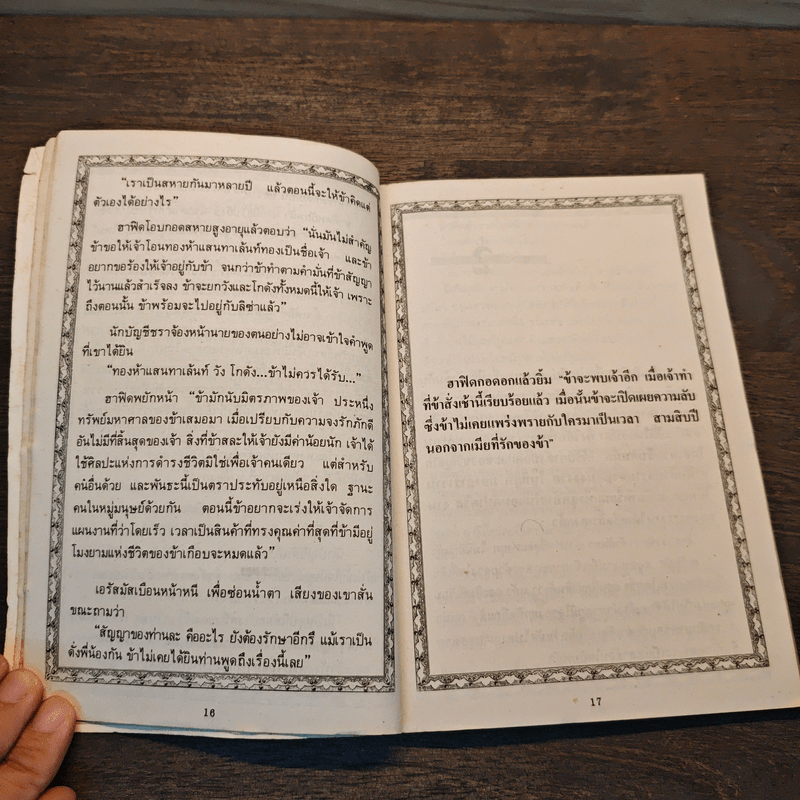 “เราเป็นสหายกันมาหลายปี แล้วตอนนี้จะให้ข้าคิดแต่
ตัวเองได้อย่างไร”
ฮาฟิดโอบกอดสหายสูงอายุแล้วตอบว่า “นั่นมันไม่สำคัญ
ข้าขอให้เจ้าโอนทองห้าแสนทาเล้นท์ทองเป็นชื่อเจ้า และข้า
อยากขอร้องให้เจ้าอยู่กับข้า จนกว่าข้าทำตามคำมั่นที่ข้าสัญญา
ไว้นานแล้วสำเร็จลง ข้าจะยกวังและโกดังทั้งหมดนี้ให้เจ้า เพราะ
ถึงตอนนั้น ข้าพร้อมจะไปอยู่กับลิซ่าแล้ว”
นักบัญชีชราจ้องหน้านายของตนอย่างไม่อาจเข้าใจคำพูด
ที่เขาได้ยิน
“ทองห้าแสนทาเล้นท์ วัง โกดัง...ข้าไม่ควรได้รับ...”
ฮาฟิดพยักหน้า “ข้ามักนับมิตรภาพของเจ้า ประหนึ่ง
ทรัพย์มหาศาลของข้าเสมอมา เมื่อเปรียบกับความจงรักภักดี
อันไม่มีที่สิ้นสุดของเจ้า สิ่งที่ข้าสละให้เจ้ายังมีค่าน้อยนัก เจ้าได้
ใช้ศิลปะแห่งการดำรงชีวิตมิใช่เพื่อเจ้าคนเดียว แต่สำหรับ
คนอื่นด้วย และพันธะนี้เป็นตราประทับอยู่เหนือสิ่งใด ฐานะ
คนในหมู่มนุษย์ด้วยกัน ตอนนี้ข้าอยากจะเร่งให้เจ้าจัดการ
แผนงานที่ว่าโดยเร็ว เวลาเป็นสินค้าที่ทรงคุณค่าที่สุดที่ข้ามีอยู่
โมงยามแห่งชีวิตของข้าเกือบจะหมดแล้ว”
เอรัสมัสเบือนหน้าหนี เพื่อซ่อนน้ำตา เสียงของเขาสั่น
ขณะถามว่า
“สัญญาของท่านละ คืออะไร ยังต้องรักษาอีกรึ แม้เราเป็น
ดั่งพี่น้องกัน ข้าไม่เคยได้ยินท่านพูดถึงเรื่องนี้เลย”
16
ฮาฟิดกอดอกแล้วยิ้ม “ข้าจะพบเจ้าอีก เมื่อเจ้าทำ
ที่ข้าสั่งเช้านี้เรียบร้อยแล้ว เมื่อนั้นข้าจะเปิดเผยความลับ
ซึ่งข้าไม่เคยแพร่งพรายกับใครมาเป็นเวลา สามสิบปี
นอกจากเมียที่รักของข้า”
17